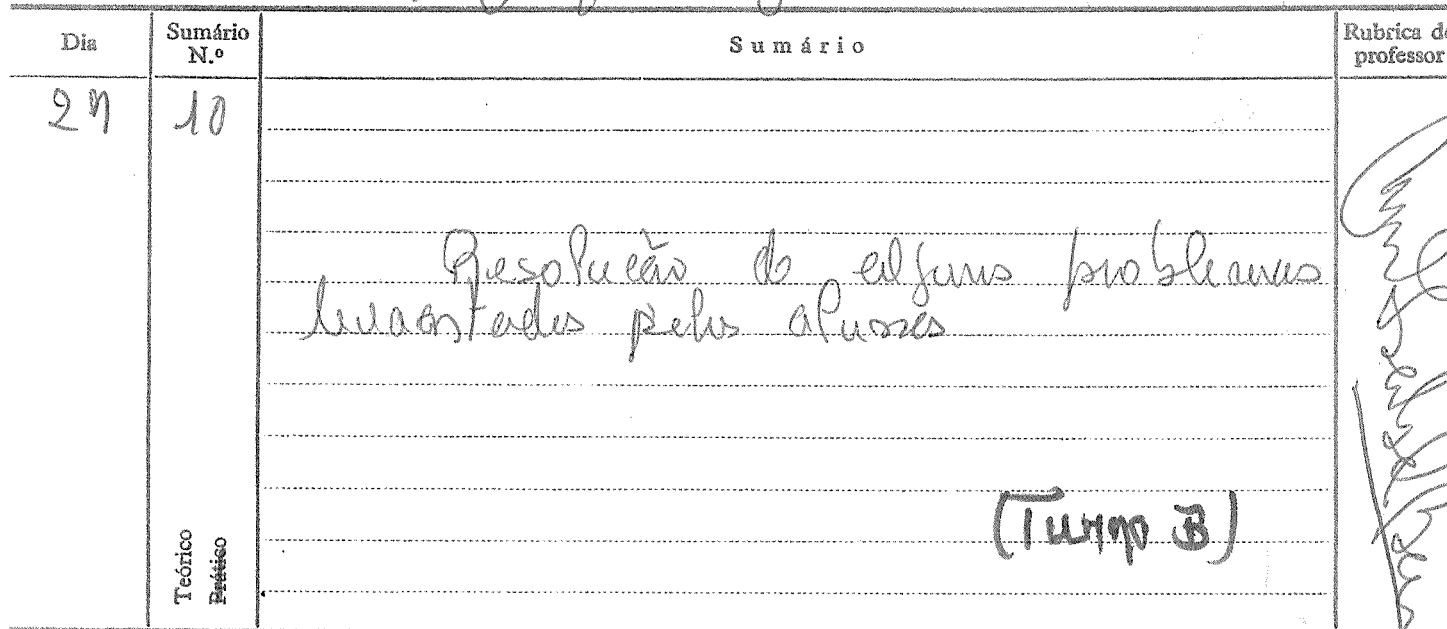 Dia
Sumário N.º
Sumário
Rubrica do professor
10
Resolução de alguns problemas
levantados pelos alunos
(Turno B)
Teórico
Prático